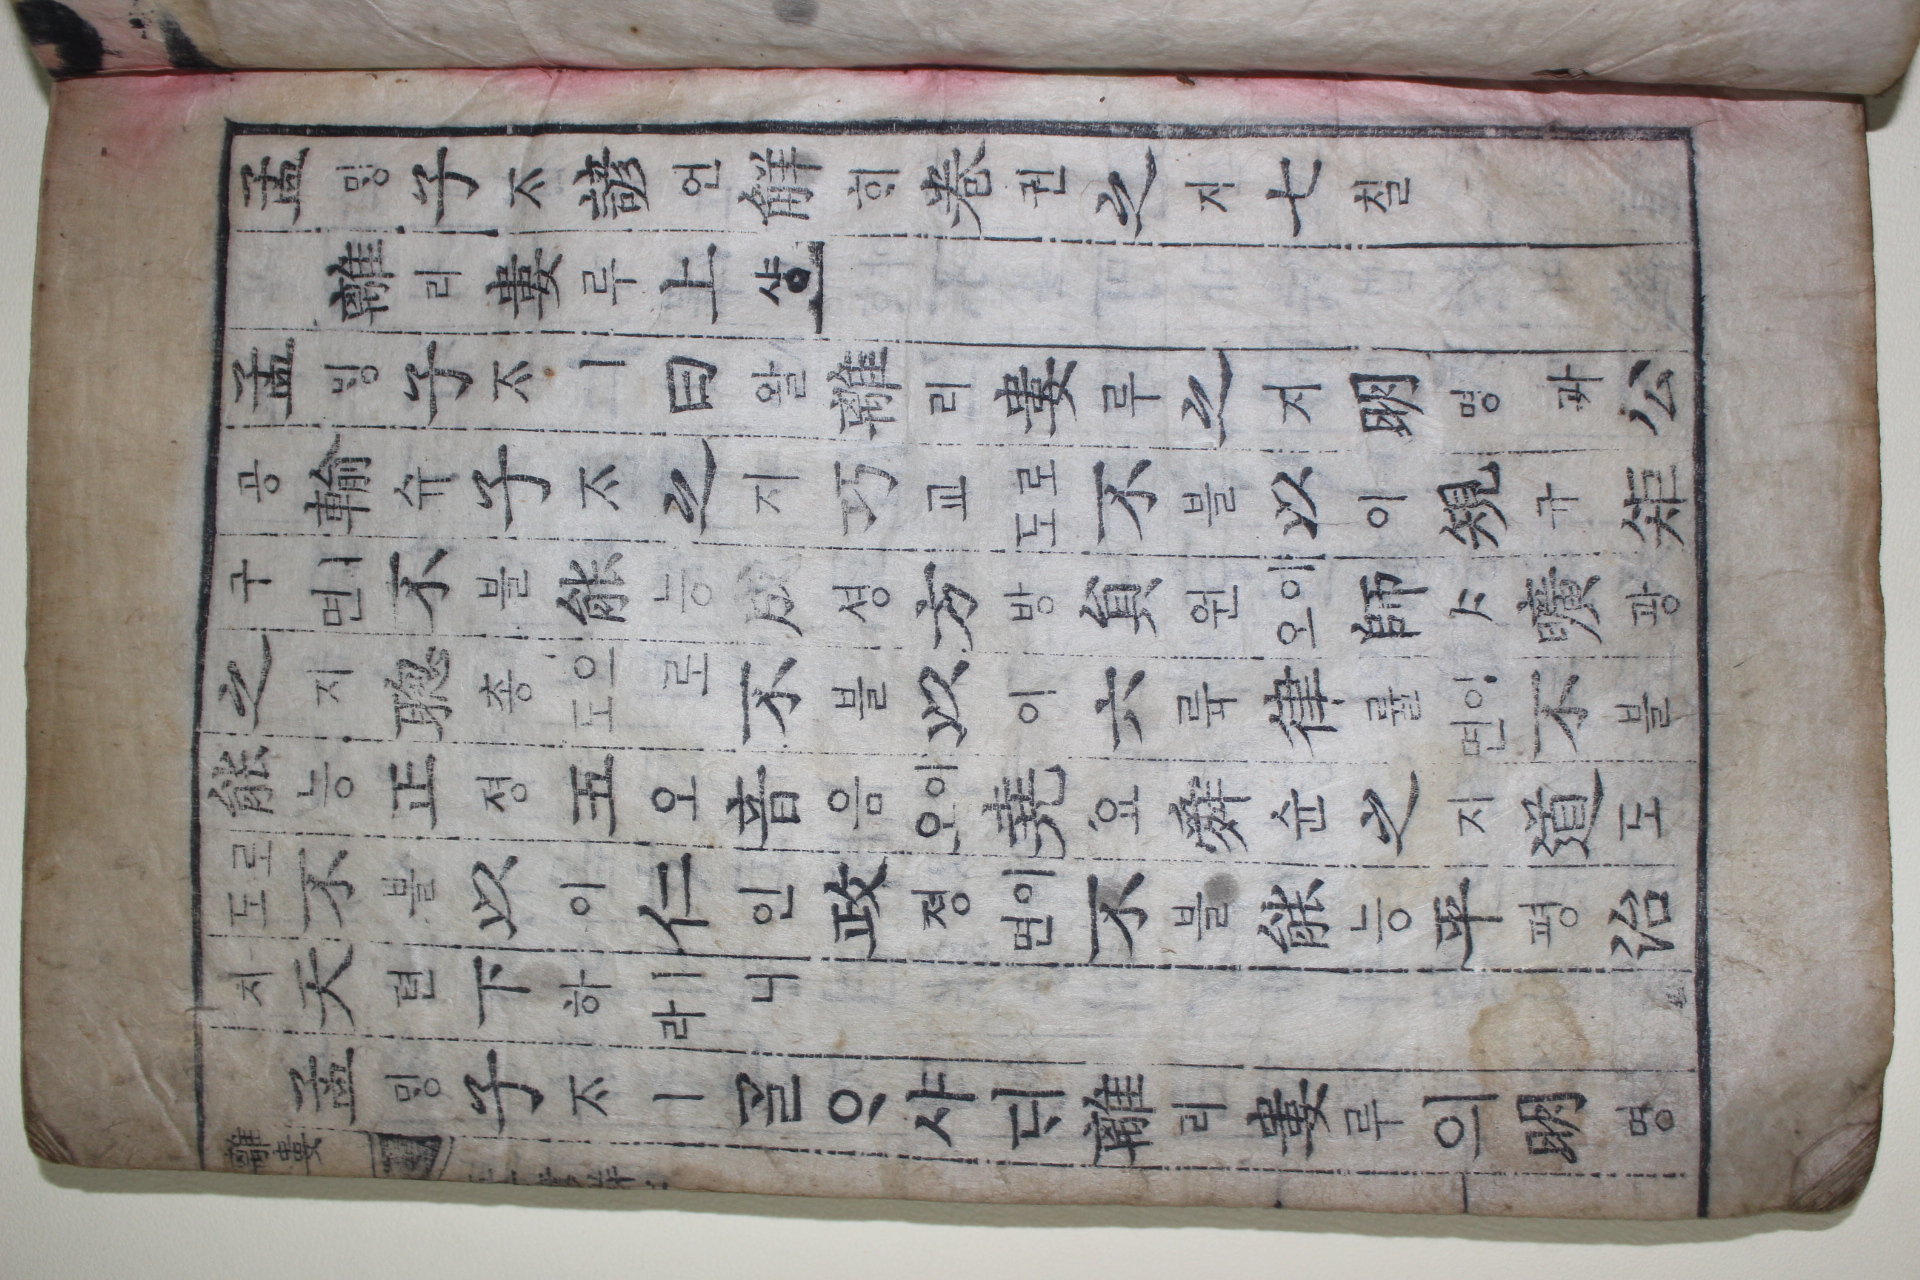 孟ᄆᆡᇰ子ᄌᆞ諺언解ᄒᆡ卷권之지七칠
離리婁루上샹
孟ᄆᆡᇰ子ᄌᆞㅣ曰왈離리婁루之지明명과公
공輸슈子ᄌᆞ之지巧교로도不불以이規규矩
구ㅣ면不불能능成셩方방員원이오師ᄉᆞ曠광
之지聰총으로도不불以이六륙律률이면不불
能능正졍五오音음이오堯요舜슌之지道도
로도不불以이仁인政졍이면不불能능平평治
치天텬下하ㅣ니라
孟ᄆᆡᇰ子ᄌᆞㅣᄀᆞᆯᄋᆞ샤ᄃᆡ離리婁루의明명
離婁